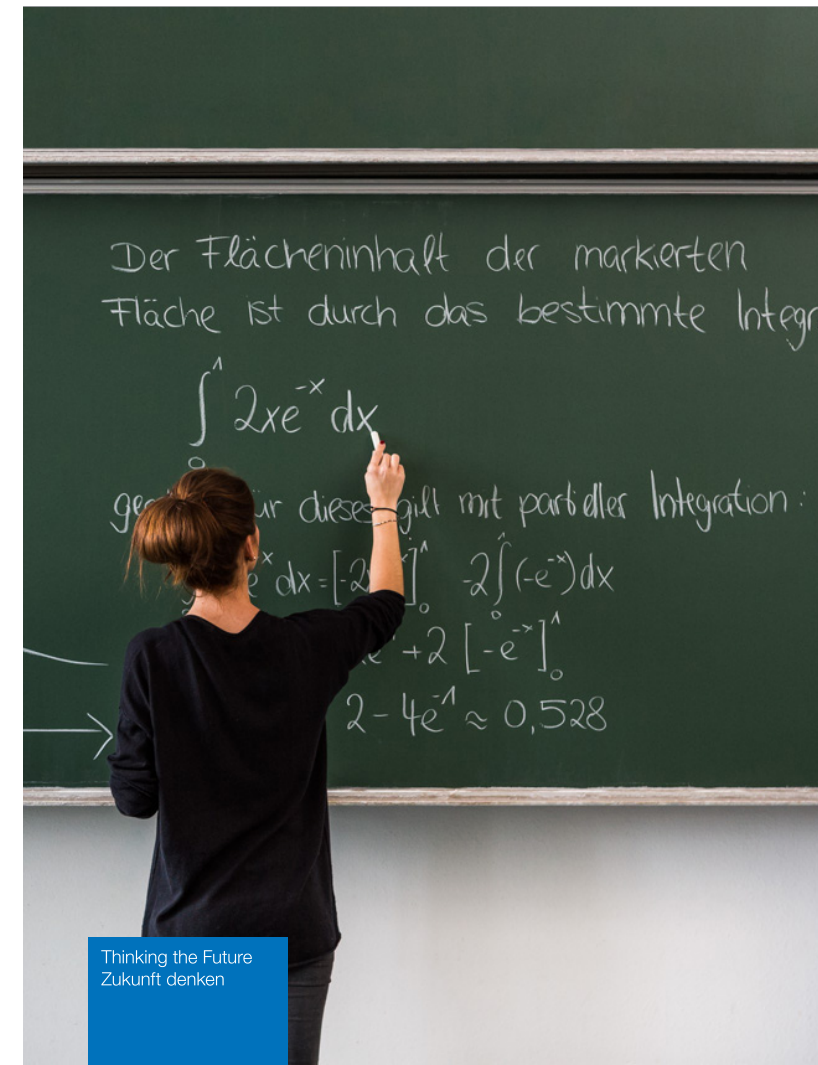 Der Flächeninhalt der markierten
Fläche ist durch das bestimmte Integr
∫₀¹ 2xe⁻ˣ dx
dieses gilt mit partieller Integration:
dx = [-2 ]₀¹ -2∫₀¹(-e⁻ˣ)dx
+2 [-e⁻ˣ]₀¹
2 - 4e⁻¹ ≈ 0,528
Thinking the Future
Zukunft denken